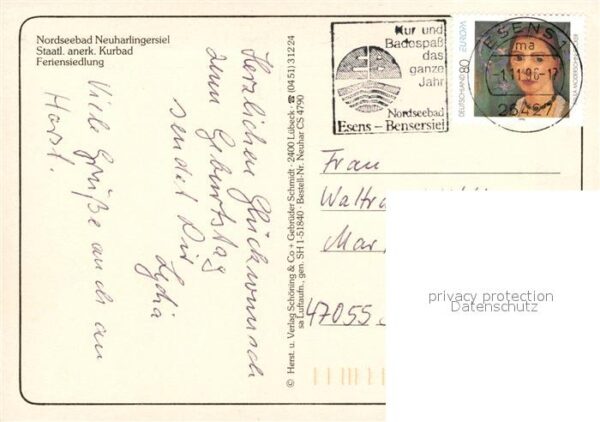 Nordseebad Neuharlingersiel
Staatl. anerk. Kurbad
Feriensiedlung
Herzlichen Glückwunsch
zum Geburtstag
sendet Dir
Lydia
Viele Grüße auch an
Horst.
© Herst. u. Verlag Schöning & Co + Gebrüder Schmidt · 2400 Lübeck · ☎ (04 51) 3 12 24
sa Luftaufn., gen. SH 1-51840 · Bestell-Nr. Neuhar CS 4790
Kur und
Badespaß
das
ganze
Jahr
Nordseebad
Esens – Bensersiel
ESENS 1
ma
-1.11.96-17
2642
DEUTSCHLAND 80
Frau
47055
privacy protection
Datenschutz